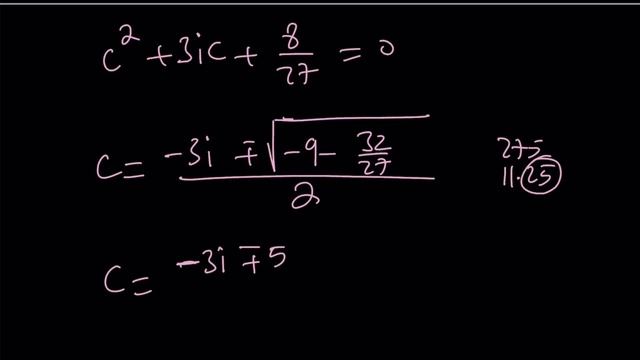 c² + 3ic + 8/27 = 0
c = (-3i ∓ √(-9 - 32/27))/2
275
11·25
c = -3i ∓ 5